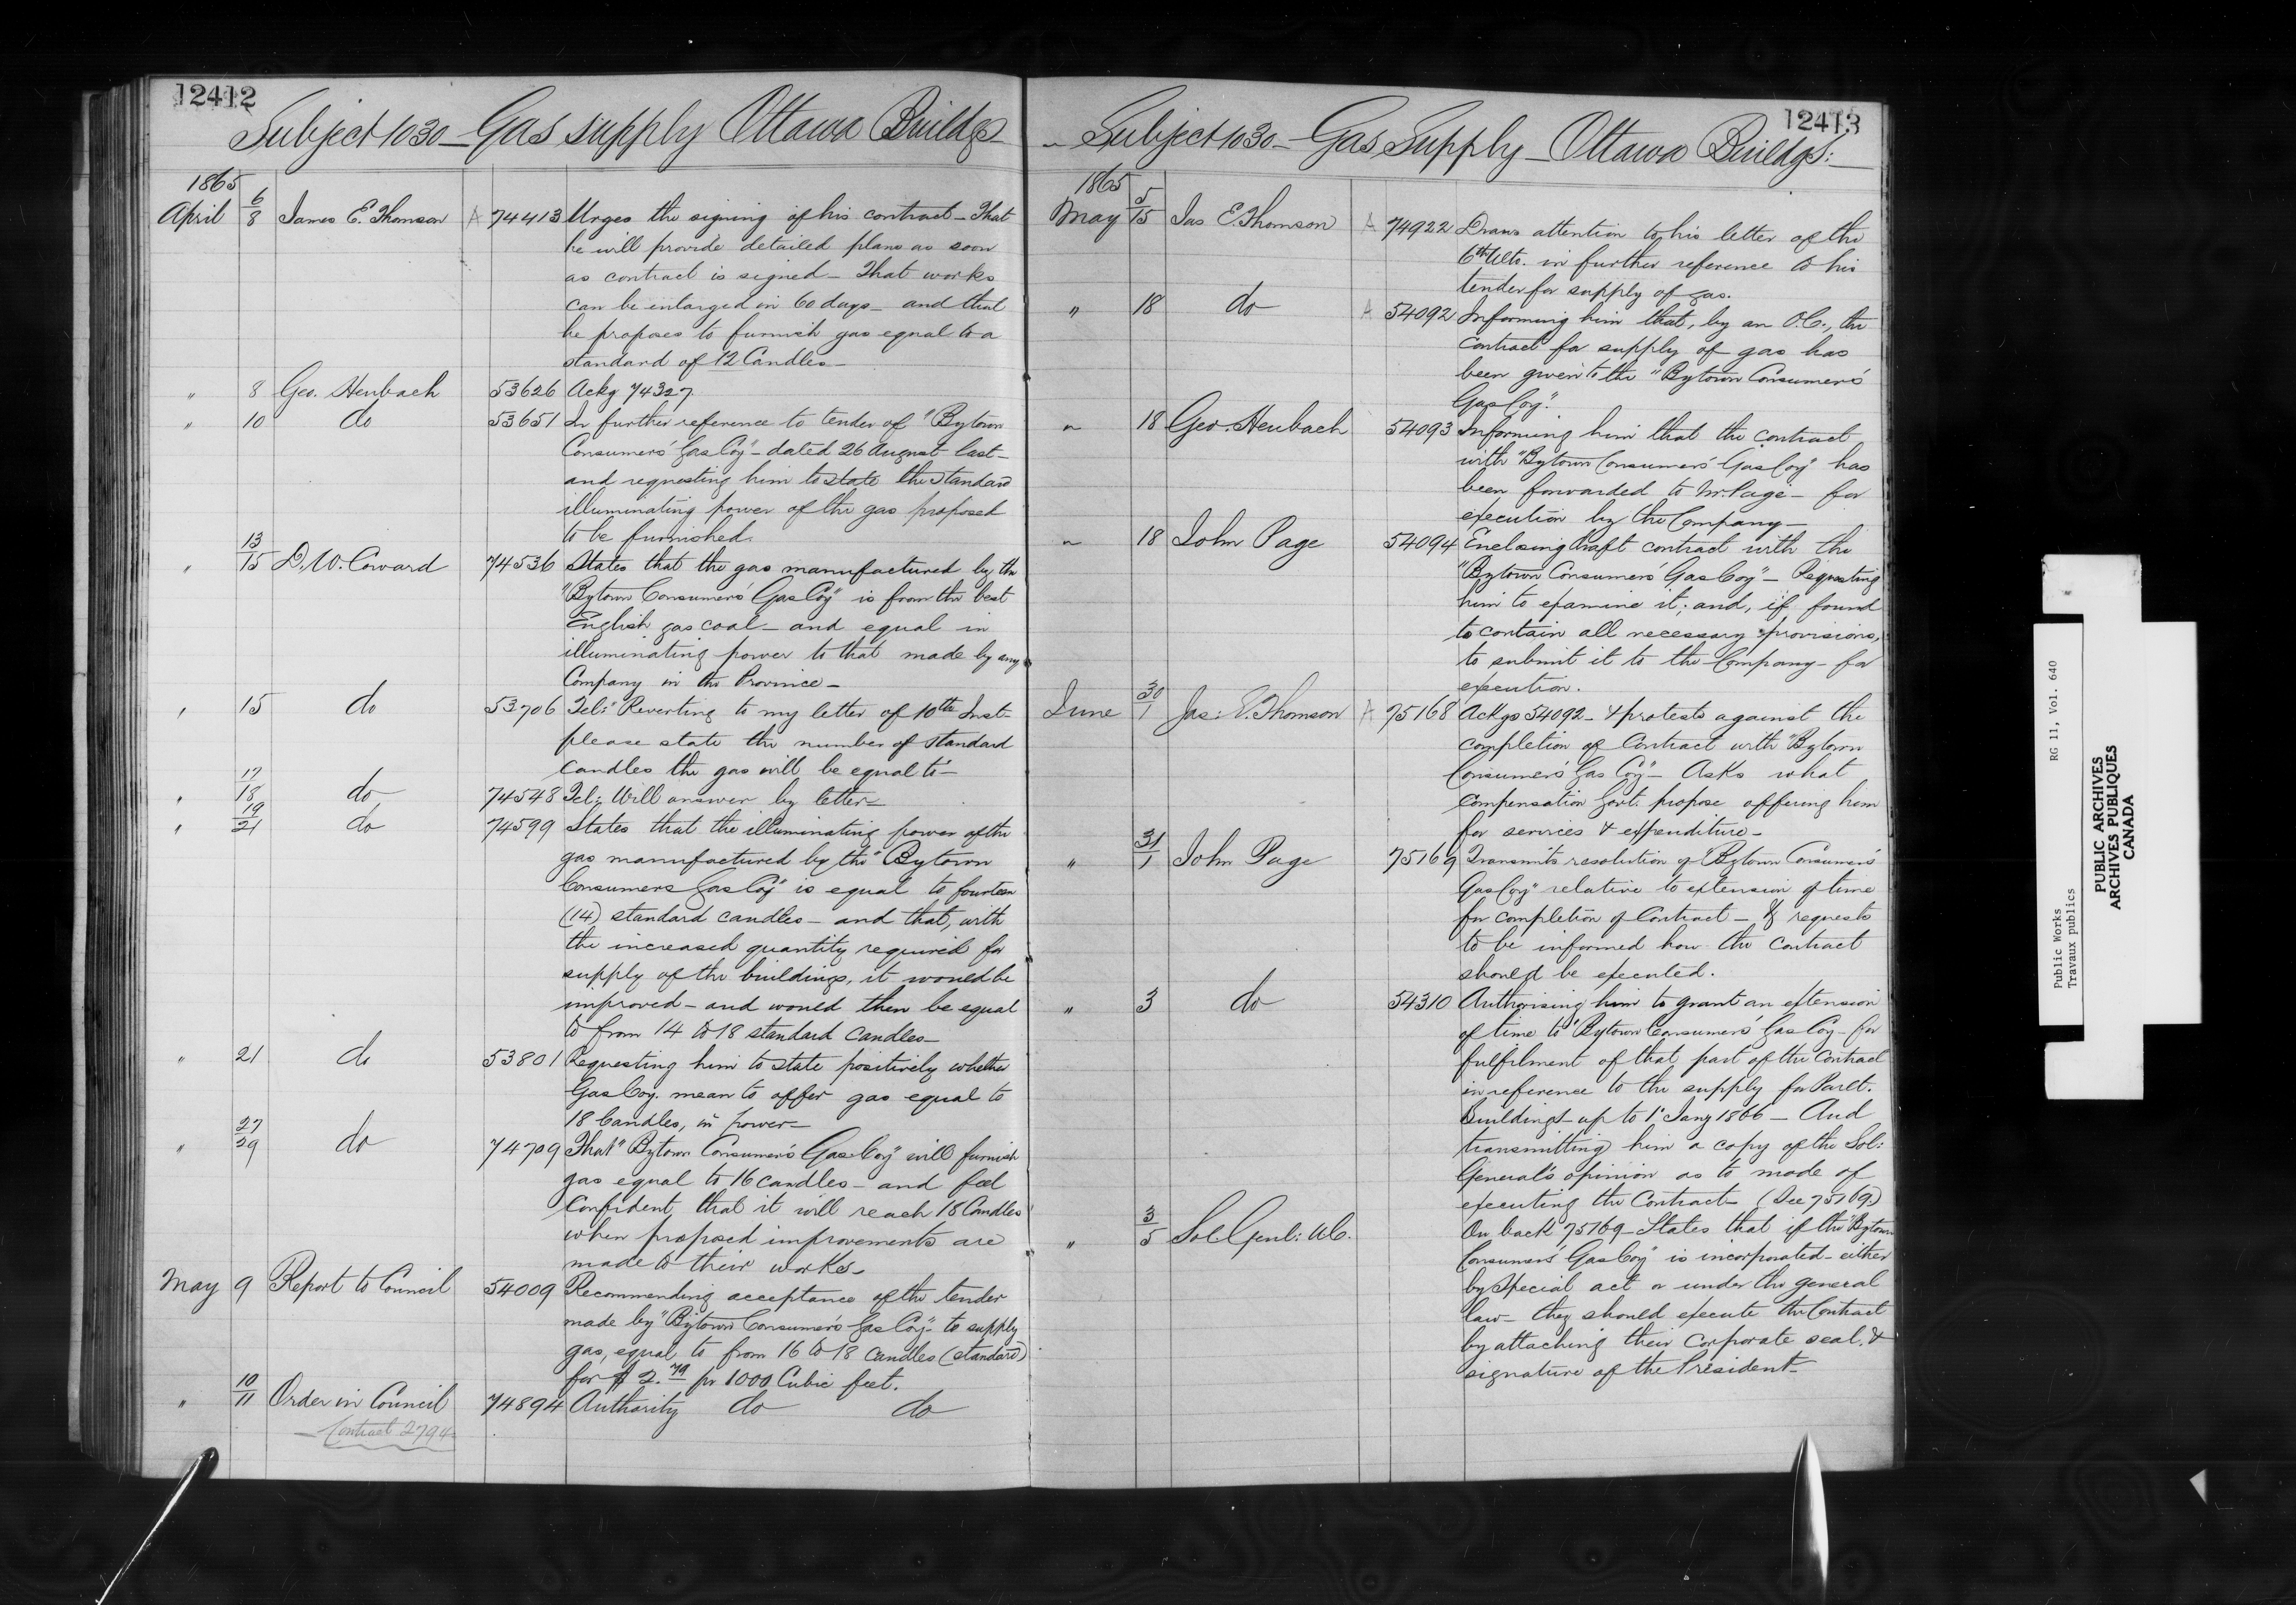 12412
Subject 1030 - Gas supply Ottawa Buildgs -
1865
April 6/8 James E. Thomson A 74413 Urges the signing of his contract - That
he will provide detailed plans as soon
as contract is signed - That works
can be enlarged in 60 days - and that
he proposes to furnish gas equal to a
standard of 12 Candles -
" 8 Geo. Heubach 53626 Ackg 74327.
" 10 do 53651 In further reference to tender of "Bytown
Consumers' Gas Coy" - dated 26 August last -
and requesting him to state the standard
illuminating power of the gas proposed
to be furnished.
" 13/15 D. W. Coward 74536 States that the gas manufactured by the
"Bytown Consumers' Gas Coy" is from the best
English gas coal - and equal in
illuminating power to that made by any
Company in the Province -
" 15 do 53706 Tel: "Reverting to my letter of 10th Inst -
please state the number of standard
Candles the gas will be equal to" -
" 17/18 do 74548 Tel: Will answer by letter -
" 19/21 do 74599 States that the illuminating power of the
gas manufactured by the "Bytown
Consumers Gas Coy" is equal to fourteen
(14) standard candles - and that, with
the increased quantity required for
supply of the buildings, it would be
improved - and would then be equal
to from 14 to 18 standard Candles -
" 21 do 53801 Requesting him to state positively whether
Gas Coy. mean to offer gas equal to
18 Candles, in power -
" 27/29 do 74709 That "Bytown Consumer's Gas Coy" will furnish
gas equal to 16 candles - and feel
Confident that it will reach 18 Candles
when proposed improvements are
made to their works -
May 9 Report to Council 54009 Recommending acceptance of the tender
made by "Bytown Consumers Gas Coy" to supply
gas, equal to from 16 to 18 candles (standard)
for $2.79 pr 1000 Cubic feet.
" 10/11 Order in Council 74894 Authority do do
Contract 2794
12413
- Subject 1030 - Gas Supply - Ottawa Buildgs: -
1865
May 5/15 Jas E. Thomson A 74922 Draws attention to his letter of the
6th Ulto. in further reference to his
tender for supply of gas.
" 18 do A 54092 Informing him that, by an O.C., the
contract for supply of gas has
been given to the "Bytown Consumers'
Gas Coy."
" 18 Geo. Heubach 54093 Informing him that the contract
with "Bytown Consumers' Gas Coy" has
been forwarded to Mr. Page - for
execution by the Company -
" 18 John Page 54094 Enclosing Draft contract with the
"Bytown Consumers' Gas Coy" - Requesting
him to examine it; and, if found
to contain all necessary provisions,
to submit it to the Company - for
execution.
June 30/1 Jas: E. Thomson A 75168 Ackgs 54092 - & protests against the
completion of Contract with "Bytown
Consumers Gas Coy" - Asks what
compensation Govt. propose offering him
for services & expenditure -
" 31/1 John Page 75169 Transmits resolution of "Bytown Consumers'
Gas Coy" relative to extension of time
for completion of Contract - & requests
to be informed how the contract
should be executed.
" 3 do 54310 Authorising him to grant an extension
of time to "Bytown Consumers' Gas Coy - for
fulfilment of that part of the contract
in reference to the supply for Parlt.
Buildings - up to 1st Jany 1866 - And
transmitting him a copy of the Sol:
General's opinion as to mode of
executing the Contract - (See 75169.)
" 3/5 Sol. Genl: U.C. On back 75169 - States that if the "Bytown
Consumers' Gas Coy" is incorporated - either
by Special act or under the general
law - they should execute the Contract
by attaching their Corporate seal, &
signature of the President -
Public Works RG 11, Vol. 640
Travaux publics
PUBLIC ARCHIVES
ARCHIVES PUBLIQUES
CANADA